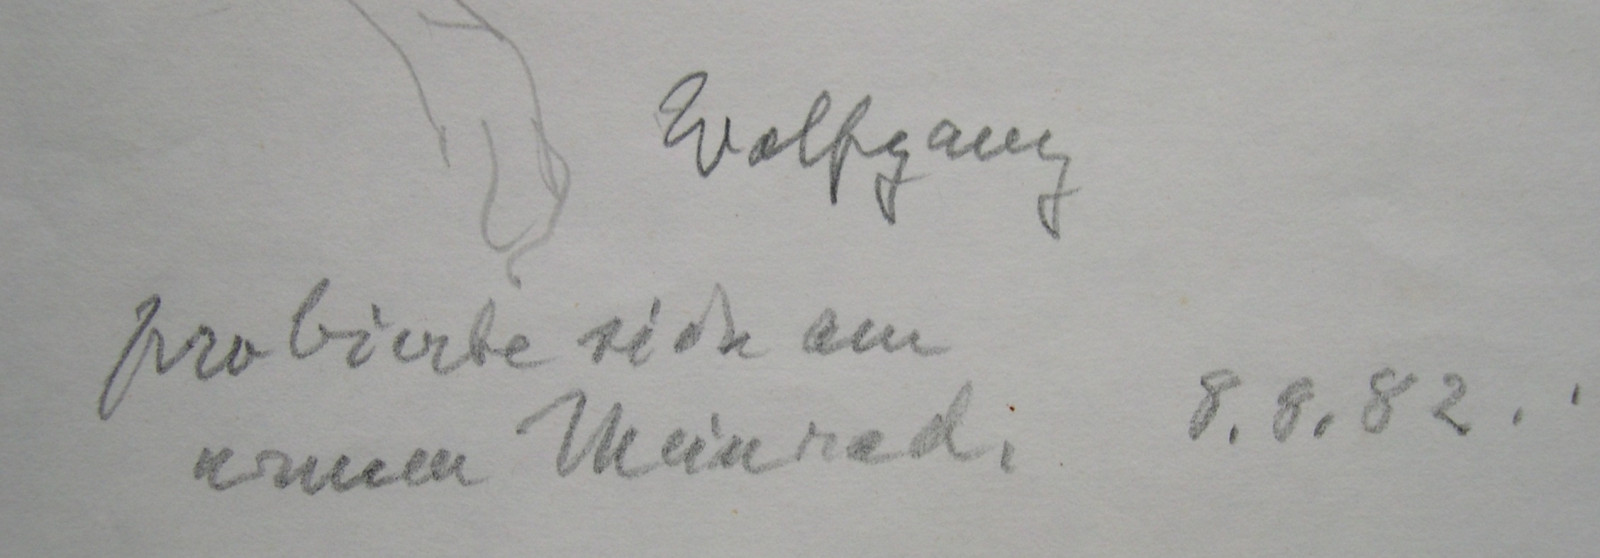 Wolfgang
probierte sich am
armen Meinrad.
8.8.82.